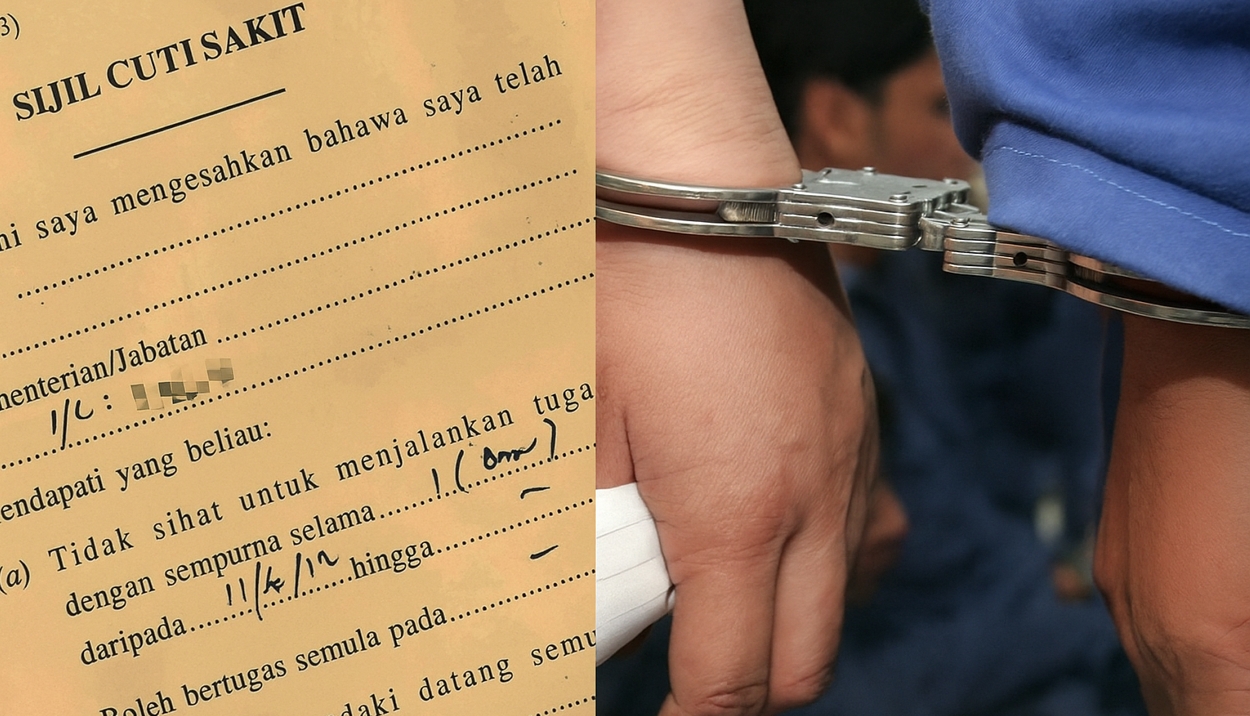 3)
SIJIL CUTI SAKIT
ni saya mengesahkan bahawa saya telah
menterian/Jabatan
I/C :
endapati yang beliau:
(a) Tidak sihat untuk menjalankan tuga
dengan sempurna selama 1 (
daripada 11/4/12 hingga –
Boleh bertugas semula pada –
daki datang semu